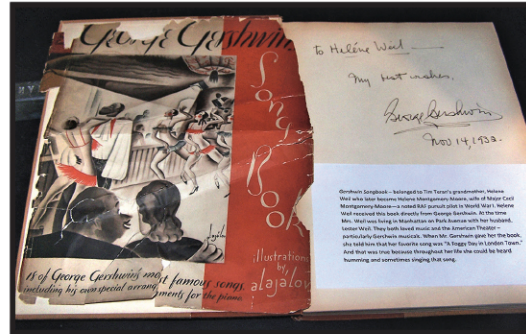 George Gershwin's
Song
Book
illustrations
by
alajalov
18 of George Gershwin's most famous songs
including his own special arrangements for the piano
to Helene Weil
My best wishes,
George Gershwin
Nov 14, 1932.
Gershwin Songbook – belonged to Tim Taran's grandmother, Helene
Weil who later became Helene Montgomery-Moore, wife of Major Cecil
Montgomery-Moore—a noted RAF pursuit pilot in World War I. Helene
Weil received this book directly from George Gershwin. At the time
Mrs. Weil was living in Manhattan on Park Avenue with her husband,
Lester Weil. They both loved music and the American Theater –
particularly Gershwin musicals. When Mr. Gershwin gave her the book,
she told him that her favorite song was "A Foggy Day in London Town."
And that was true because throughout her life she could be heard
humming and sometimes singing that song.